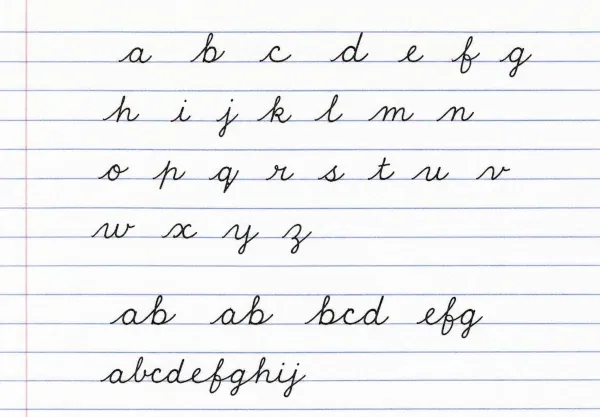 a b c d e f g
h i j k l m n
o p q r s t u v
w x y z
ab ab bcd efg
abcdefghij